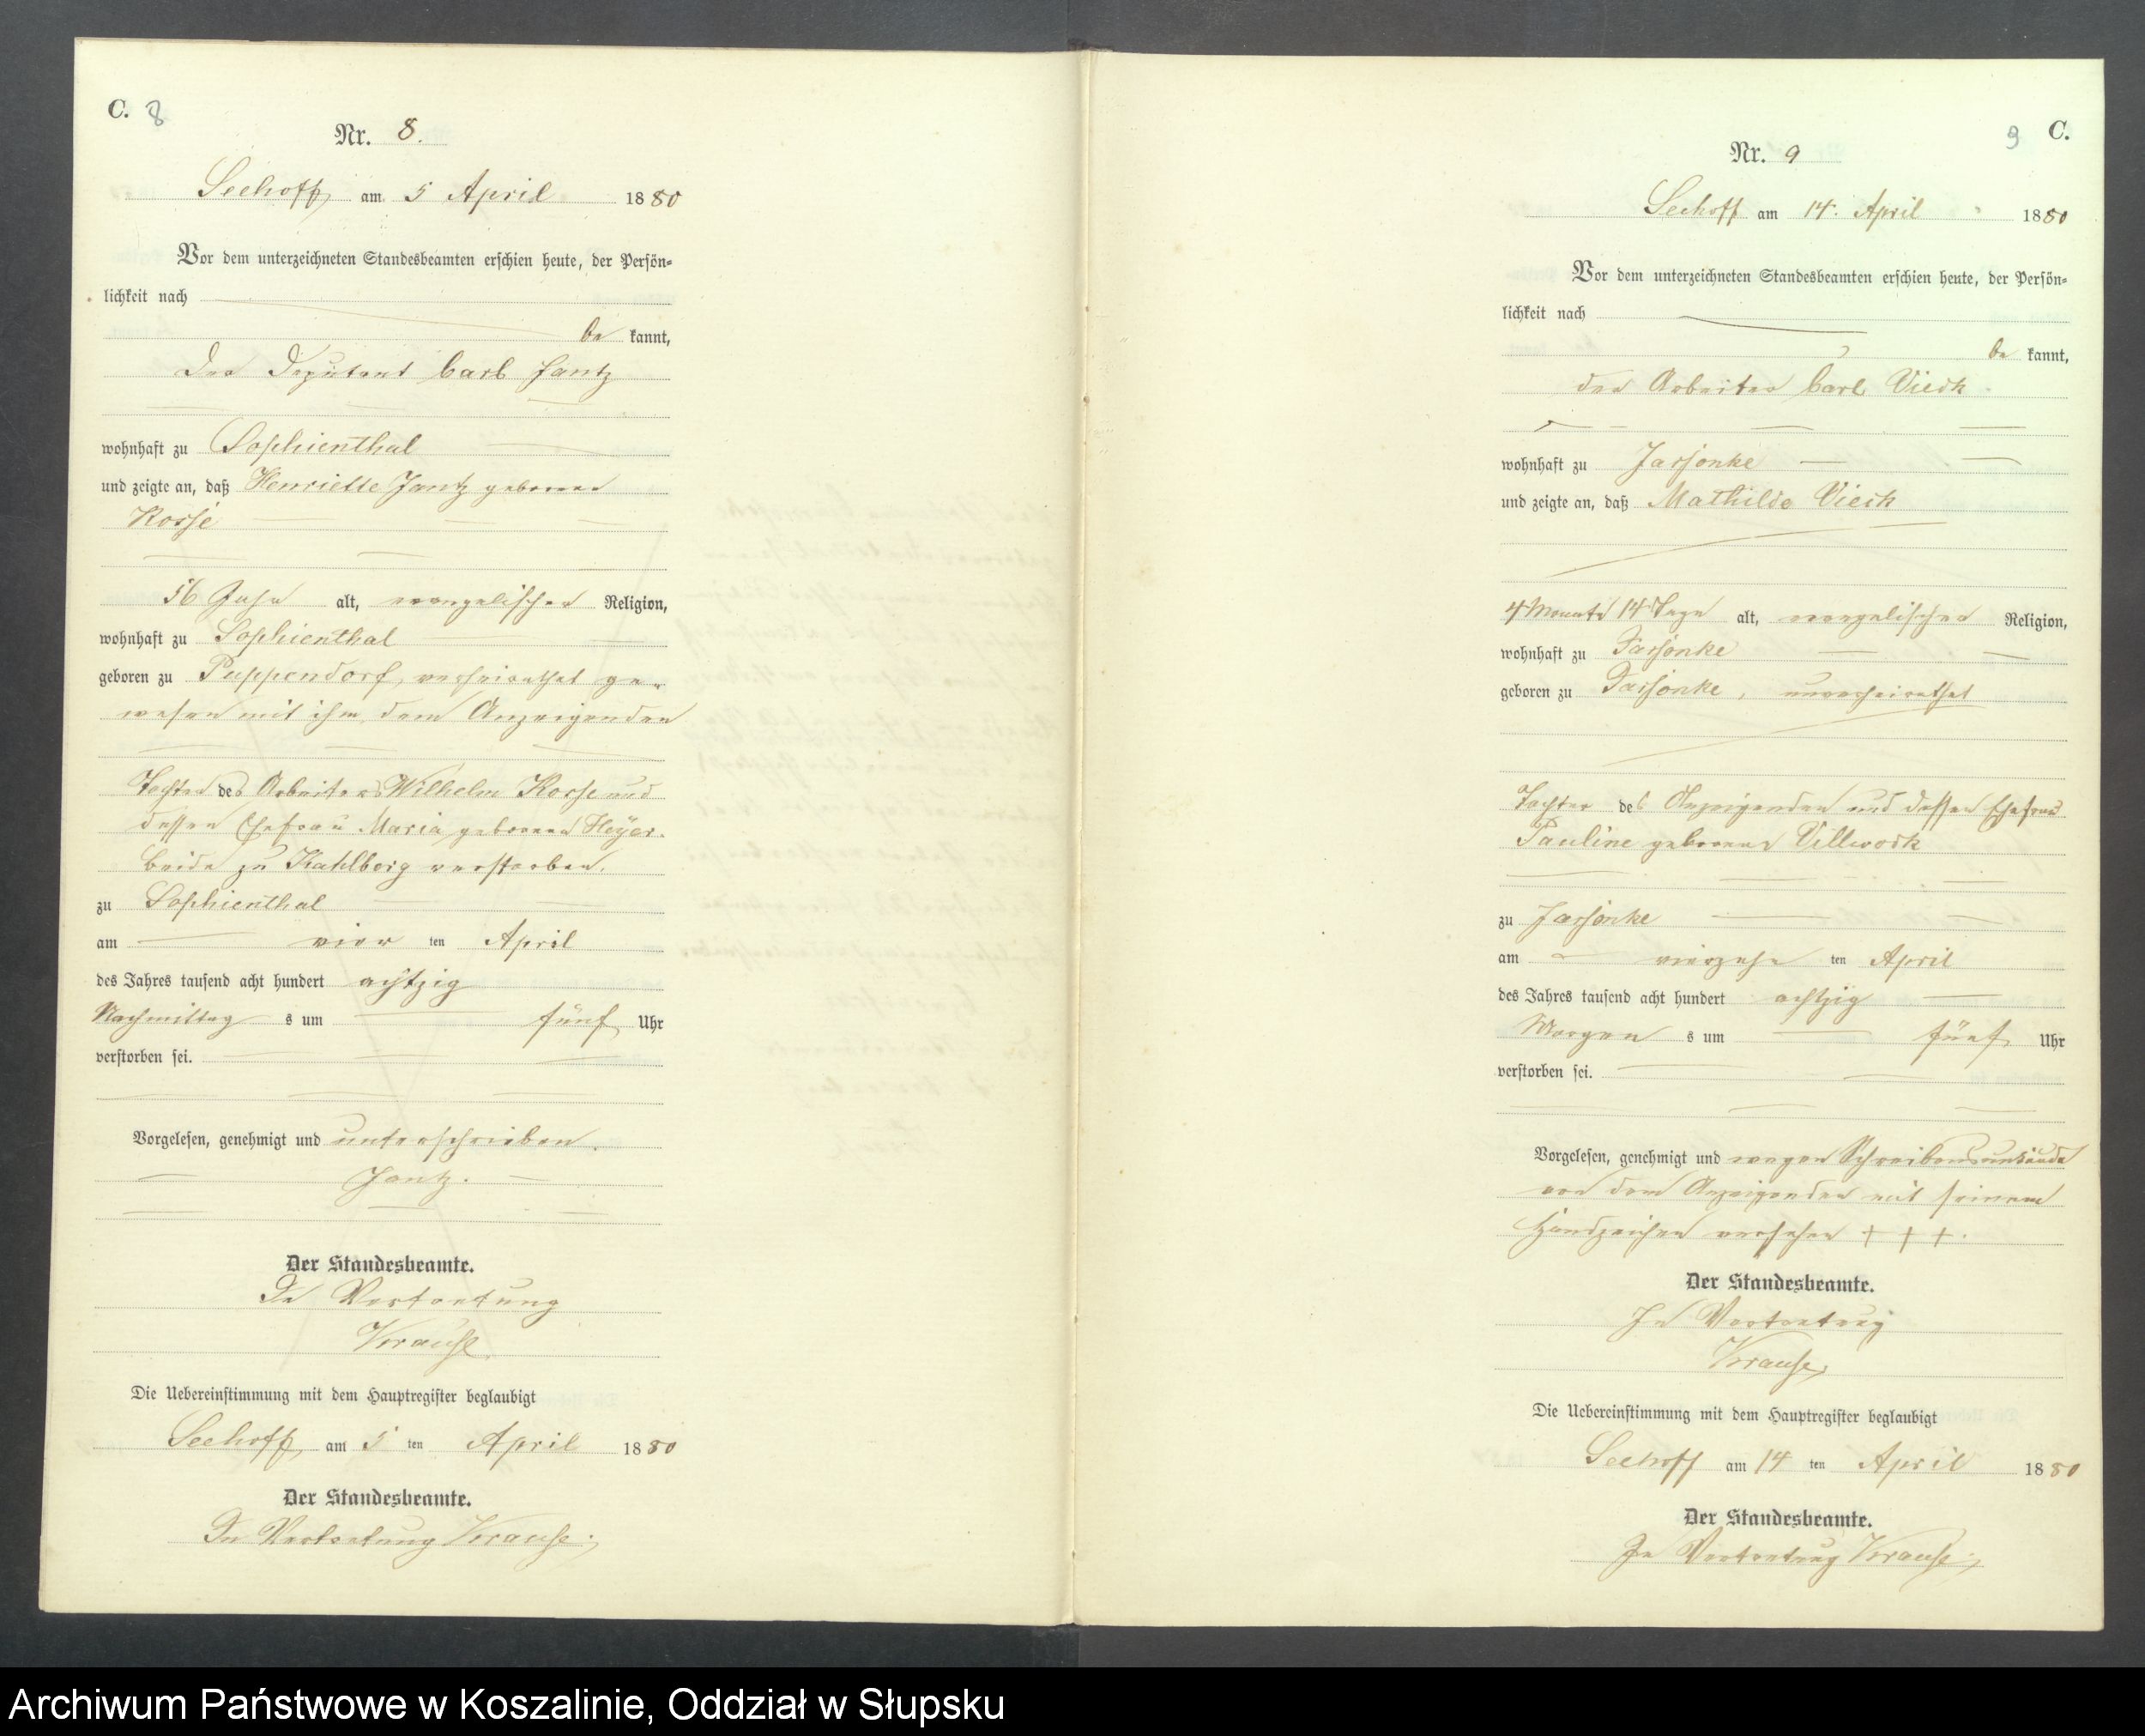 C. 8
Nr. 8.
Seehoff, am 5 April 1880
Vor dem unterzeichneten Standesbeamten erschien heute, der Persön-
lichkeit nach
be kannt,
der Deputant Carl Jantz
wohnhaft zu Sophienthal
und zeigte an, daß Henriette Jantz geborene
Kosse
56 Jahr alt, evangelischer Religion,
wohnhaft zu Sophienthal
geboren zu Puppendorf, verheirathet ge-
wesen mit ihm, dem Anzeigenden
Tochter des Arbeiters Wilhelm Kosse und
dessen Ehefrau Maria geborene Heyer.
beide zu Kahlberg verstorben.
zu Sophienthal
am vier ten April
des Jahres tausend acht hundert achtzig
Nachmittag s um fünf Uhr
verstorben sei.
Vorgelesen, genehmigt und unterschrieben.
Jantz.
Der Standesbeamte.
In Vertretung
Krause
Die Uebereinstimmung mit dem Hauptregister beglaubigt
Seehoff, am 5 ten April 1880
Der Standesbeamte.
In Vertretung Krause.
9 C.
Nr. 9
Seehoff am 14. April 1880
Vor dem unterzeichneten Standesbeamten erschien heute, der Persön-
lichkeit nach
be kannt,
der Arbeiter Carl Vieck
wohnhaft zu Jassonke
und zeigte an, daß Mathilde Vieck
4 Monate 14 Tage alt, evangelischer Religion,
wohnhaft zu Jassonke
geboren zu Jassonke, unverheirathet
Tochter des Anzeigenden und dessen Ehefrau
Pauline geborene Villwock
zu Jassonke
am vierzehn ten April
des Jahres tausend acht hundert achtzig
Morgen s um fünf Uhr
verstorben sei.
Vorgelesen, genehmigt und wegen Schreibensunkunde
von dem Anzeigenden mit seinem
Handzeichen versehen + + +.
Der Standesbeamte.
In Vertretung
Krause
Die Uebereinstimmung mit dem Hauptregister beglaubigt
Seehoff am 14 ten April 1880
Der Standesbeamte.
In Vertretung Krause.
Archiwum Państwowe w Koszalinie, Oddział w Słupsku